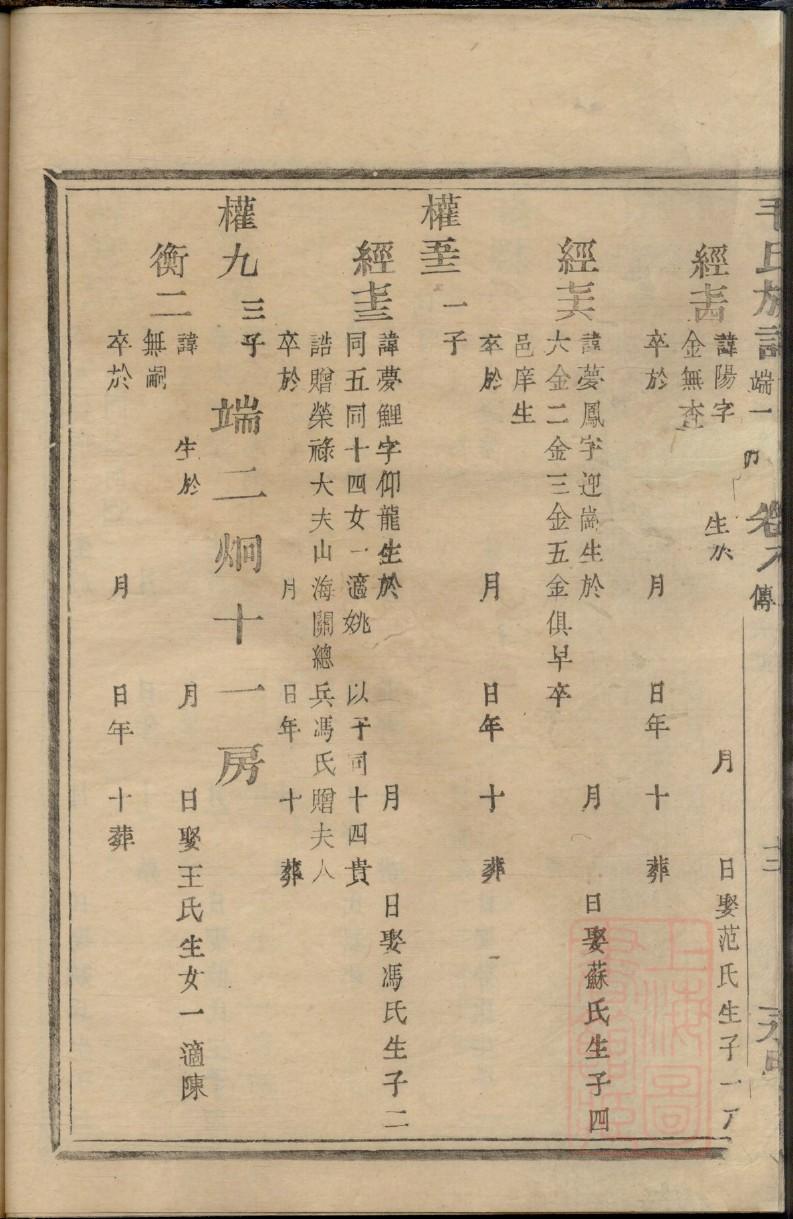 毛氏族譜 端一 卷 傳
諱陽字 生於 月 日娶范氏生子一
金無查
卒於 月 日年 十 葬
經
諱夢鳳字迎崗生於 月 日娶蘇氏生子四
大金二金三金五金俱早卒
邑庠生
卒於 月 日年 十 葬
權 一子
經
諱夢鯉字仰龍生於 月 日娶馮氏生子二
同五同十四女一適姚 以子同十四貴
誥贈榮祿大夫山海關總兵馮氏贈夫人
卒於 月 日年 十 葬
權九 三子
端二炯十一房
衡二
諱 生於 月 日娶王氏生女一適陳
無嗣
卒於 月 日年 十葬
上海圖